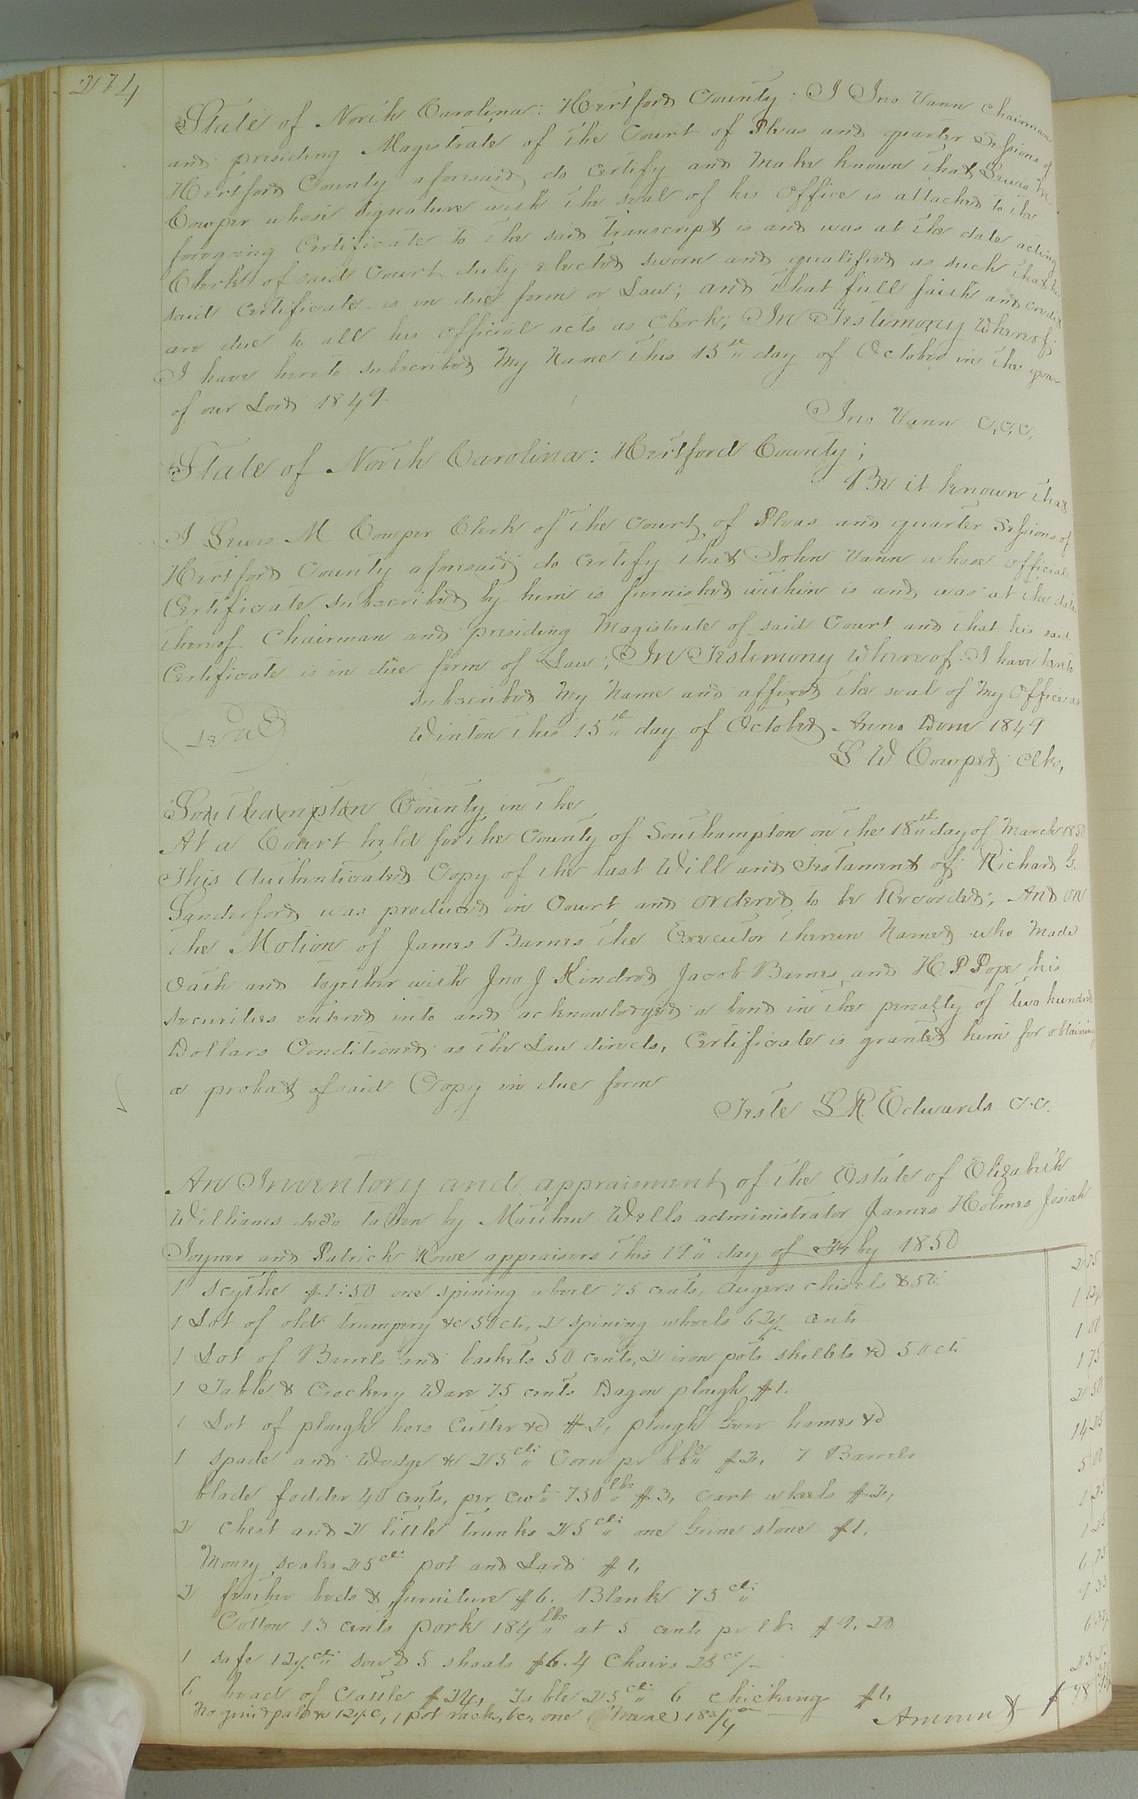 274
State of North Carolina: Hertford County: I Jno Vann Chairman
and presiding Magistrate of the Court of Pleas and quarter Sessions of
Hertford County aforesaid do certify and make known that Lewis M
Cowper whose signature with the seal of his Office is attached to the
foregoing Certificate to the said transcript is and was at the date acting
Clerk of said Court duly elected sworn and qualified as such that the
said Certificate is in due form or Law; and that full faith and credit
are due to all his official acts as Clerk; In Testimony Whereof;
I have hereto subscribed My Name this 15th day of October in the year
of our Lord 1849
Jno Vann C,C,C,
State of North Carolina: Hertford County;
Be it known that
I Lewis M Cowper Clerk of the Court of Pleas and quarter Sessions of
Hertford County aforesaid do certify that John Vann whose official
Certificate subscribed by him is furnished within is and was at the date
thereof Chairman and presiding Magistrate of said Court and that his said
Certificate is in due form of Law; In Testimony Whereof I have hereto
subscribed My Name and affixed the seal of My Office at
Winton this 15th day of October Anno Dom 1849
L W Cowper Clk,
Southampton County in the
At a Court held for the County of Southampton on the 18th day of March 1850
This Authenticated Copy of the last Will and Testament of Richard G.
Sanderford was produced in Court and ordered to be Recorded; And on
the Motion of James Barnes the Executor therein Named who Made
Oath and together with Jno J Kindred Jacob Barnes and H P Pope his
securities entered into and acknowledged a bond in the penalty of two hundred
Dollars Conditioned as the Law directs, Certificate is granted him for obtaining
a probat of said Copy in due form
Teste L R Edwards C.C.
An Inventory and appraisment of the Estate of Elizabeth
Williams decd taken by Matthew Wells administrator James Holmes Josiah
Joyner and Patrick Howe appraisers this 17" day of by 1850
1 Scythe $1:50 one spining wheel 75 cents, augers chisels & 50 2 75
1 Lot of old trumpery &c 50 cts, 2 spining wheels 62½ cents 1 12½
1 Lot of Barrels and baskets 50 cents, 2 iron pots skillets &c 50 cts 1 00
1 Table & Crockery Ware 75 cents Dagon plough $1. 1 75
1 Lot of plough hoes Cutter &c $2, plough Gear hames &c 2 50
1 spade and Wedge &c 25 cts Corn pr bbl $2, 7 Barrels 14 25
blade fodder 40 cents, per cwt 750 lbs $3, cart wheels $2, 5 00
2 chest and 2 little trunks 25 cts one Grine stone $1, 1 25
Money scales 25 cts pot and Lard $1, 1 25
2 feather beds & furniture $6. Blank 75 cts 6,75
Cotton 13 cents pork 184 lbs at 5 cents pr lb $9.20 9 33
1 safe 12½ cts sow & 5 shoats $6. 4 Chairs 25 cs
6 head of Cattle $24, Table 25 cts 6 chickings $1, 25 25
12½c, 1 pot rack, 6c, one 18¾ Amount $ 78